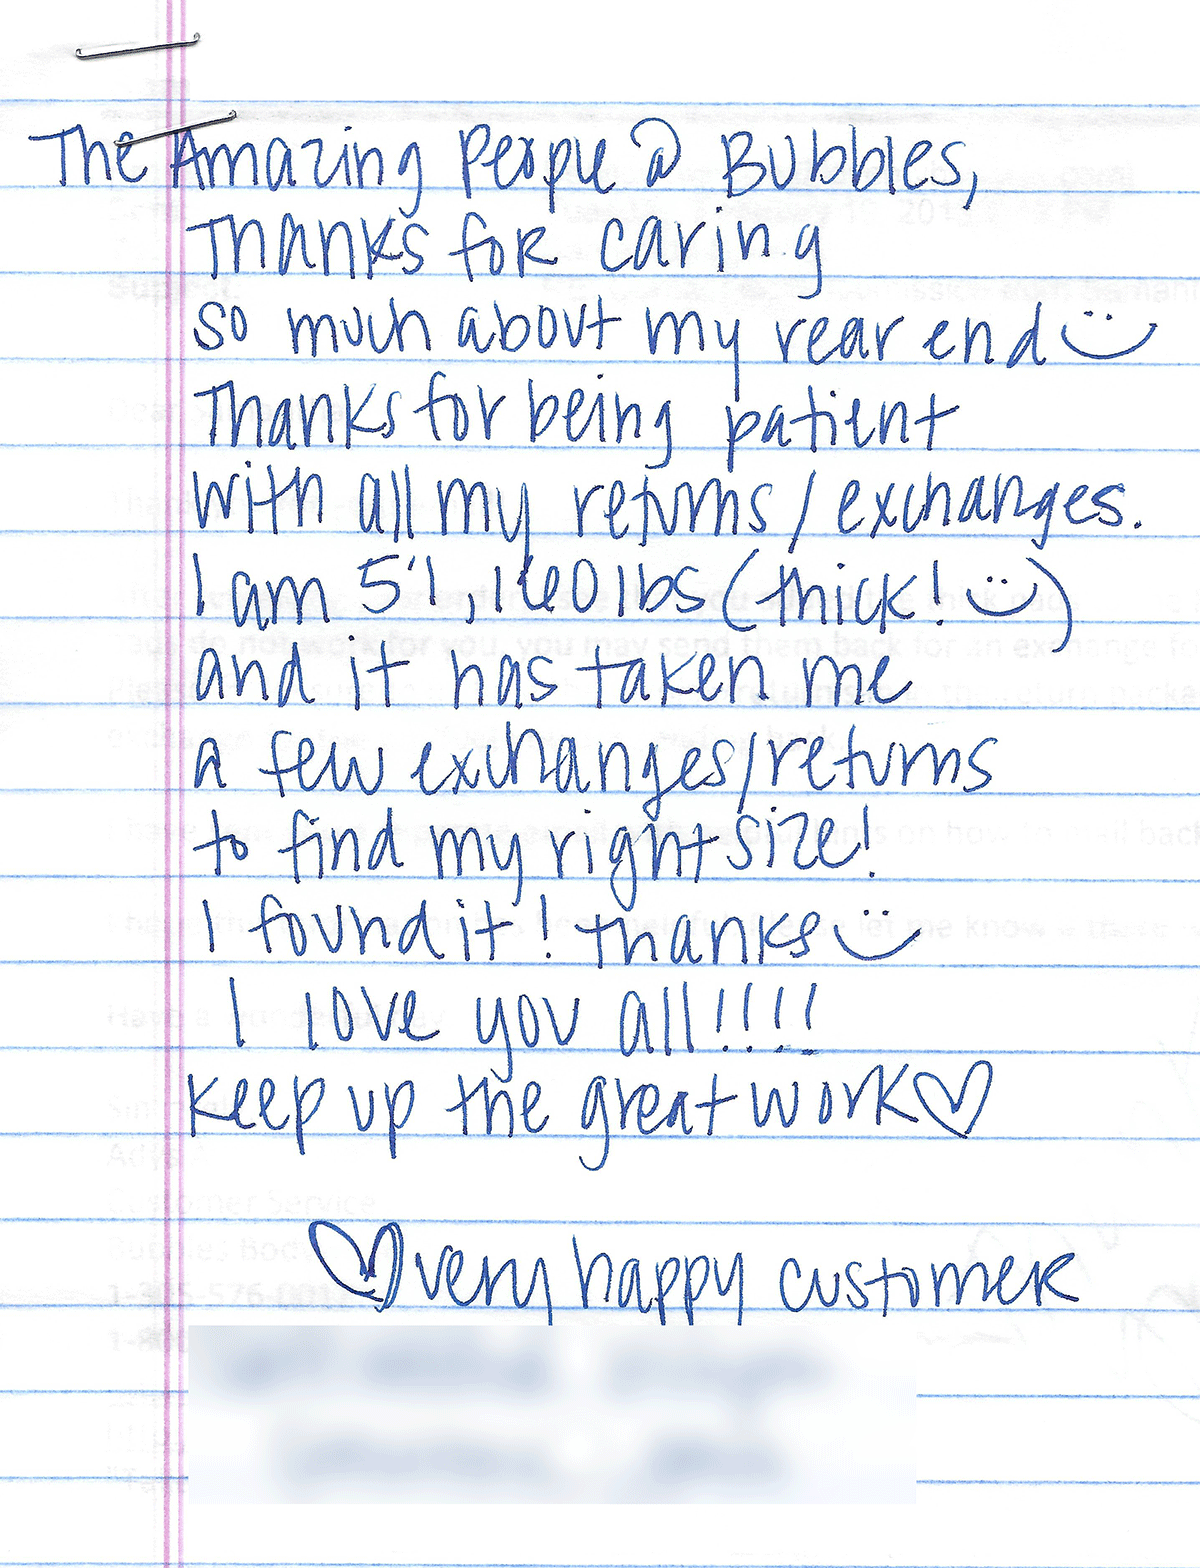 The Amazing People @ Bubbles,
Thanks for caring
so much about my rear end
Thanks for being patient
with all my returns/exchanges.
I am 5'1, 160 lbs (thick! )
and it has taken me
a few exchanges/returns
to find my right size!
I found it! thanks
I love you all!!!!
Keep up the great work
very happy customer